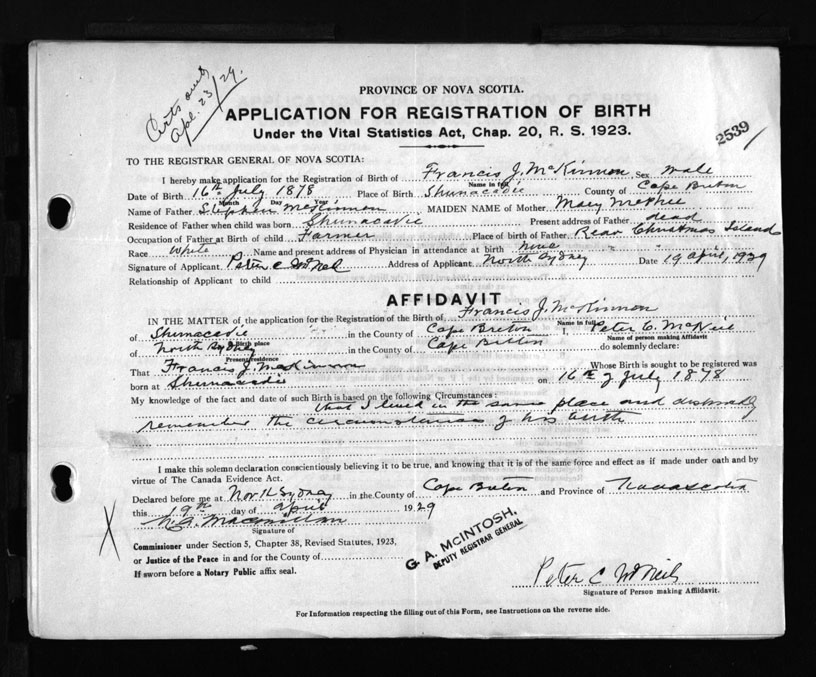 Certs out
Apl. 23/29.
PROVINCE OF NOVA SCOTIA.
APPLICATION FOR REGISTRATION OF BIRTH
Under the Vital Statistics Act, Chap. 20, R. S. 1923.
2539
TO THE REGISTRAR GENERAL OF NOVA SCOTIA:
I hereby make application for the Registration of Birth of Francis J. McKinnon Sex male
Name in full
Date of Birth 16th July 1878 Place of Birth Shunacadie County of Cape Breton
Month Day Year
Name of Father Stephen McKinnon MAIDEN NAME of Mother Mary McPhee
Residence of Father when child was born Shunacadie Present address of Father dead
Occupation of Father at Birth of child Farmer Place of birth of Father Rear Christmas Island
Race White Name and present address of Physician in attendance at birth none
Signature of Applicant Peter C McNeil Address of Applicant North Sydney Date 19 April, 1929
Relationship of Applicant to child
AFFIDAVIT
IN THE MATTER of the application for the Registration of the Birth of Francis J. McKinnon
Name in full
of Shunacadie in the County of Cape Breton I, Peter C. McNeil
Birth place
Name of person making Affidavit
of North Sydney in the County of Cape Breton do solemnly declare:
Present residence
That Francis J. McKinnon Whose Birth is sought to be registered was
born at Shunacadie on 16th of July 1878
My knowledge of the fact and date of such Birth is based on the following Circumstances:
that I lived in the same place and distinctly
remember the circumstances of his birth
I make this solemn declaration conscientiously believing it to be true, and knowing that it is of the same force and effect as if made under oath and by
virtue of The Canada Evidence Act.
Declared before me at North Sydney in the County of Cape Breton and Province of Nova Scotia
this 19th day of April 1929
Signature of
Commissioner under Section 5, Chapter 38, Revised Statutes, 1923,
or Justice of the Peace in and for the County of
If sworn before a Notary Public affix seal.
G. A. McINTOSH,
DEPUTY REGISTRAR GENERAL
Peter C McNeil
Signature of Person making Affidavit.
For Information respecting the filling out of this Form, see Instructions on the reverse side.